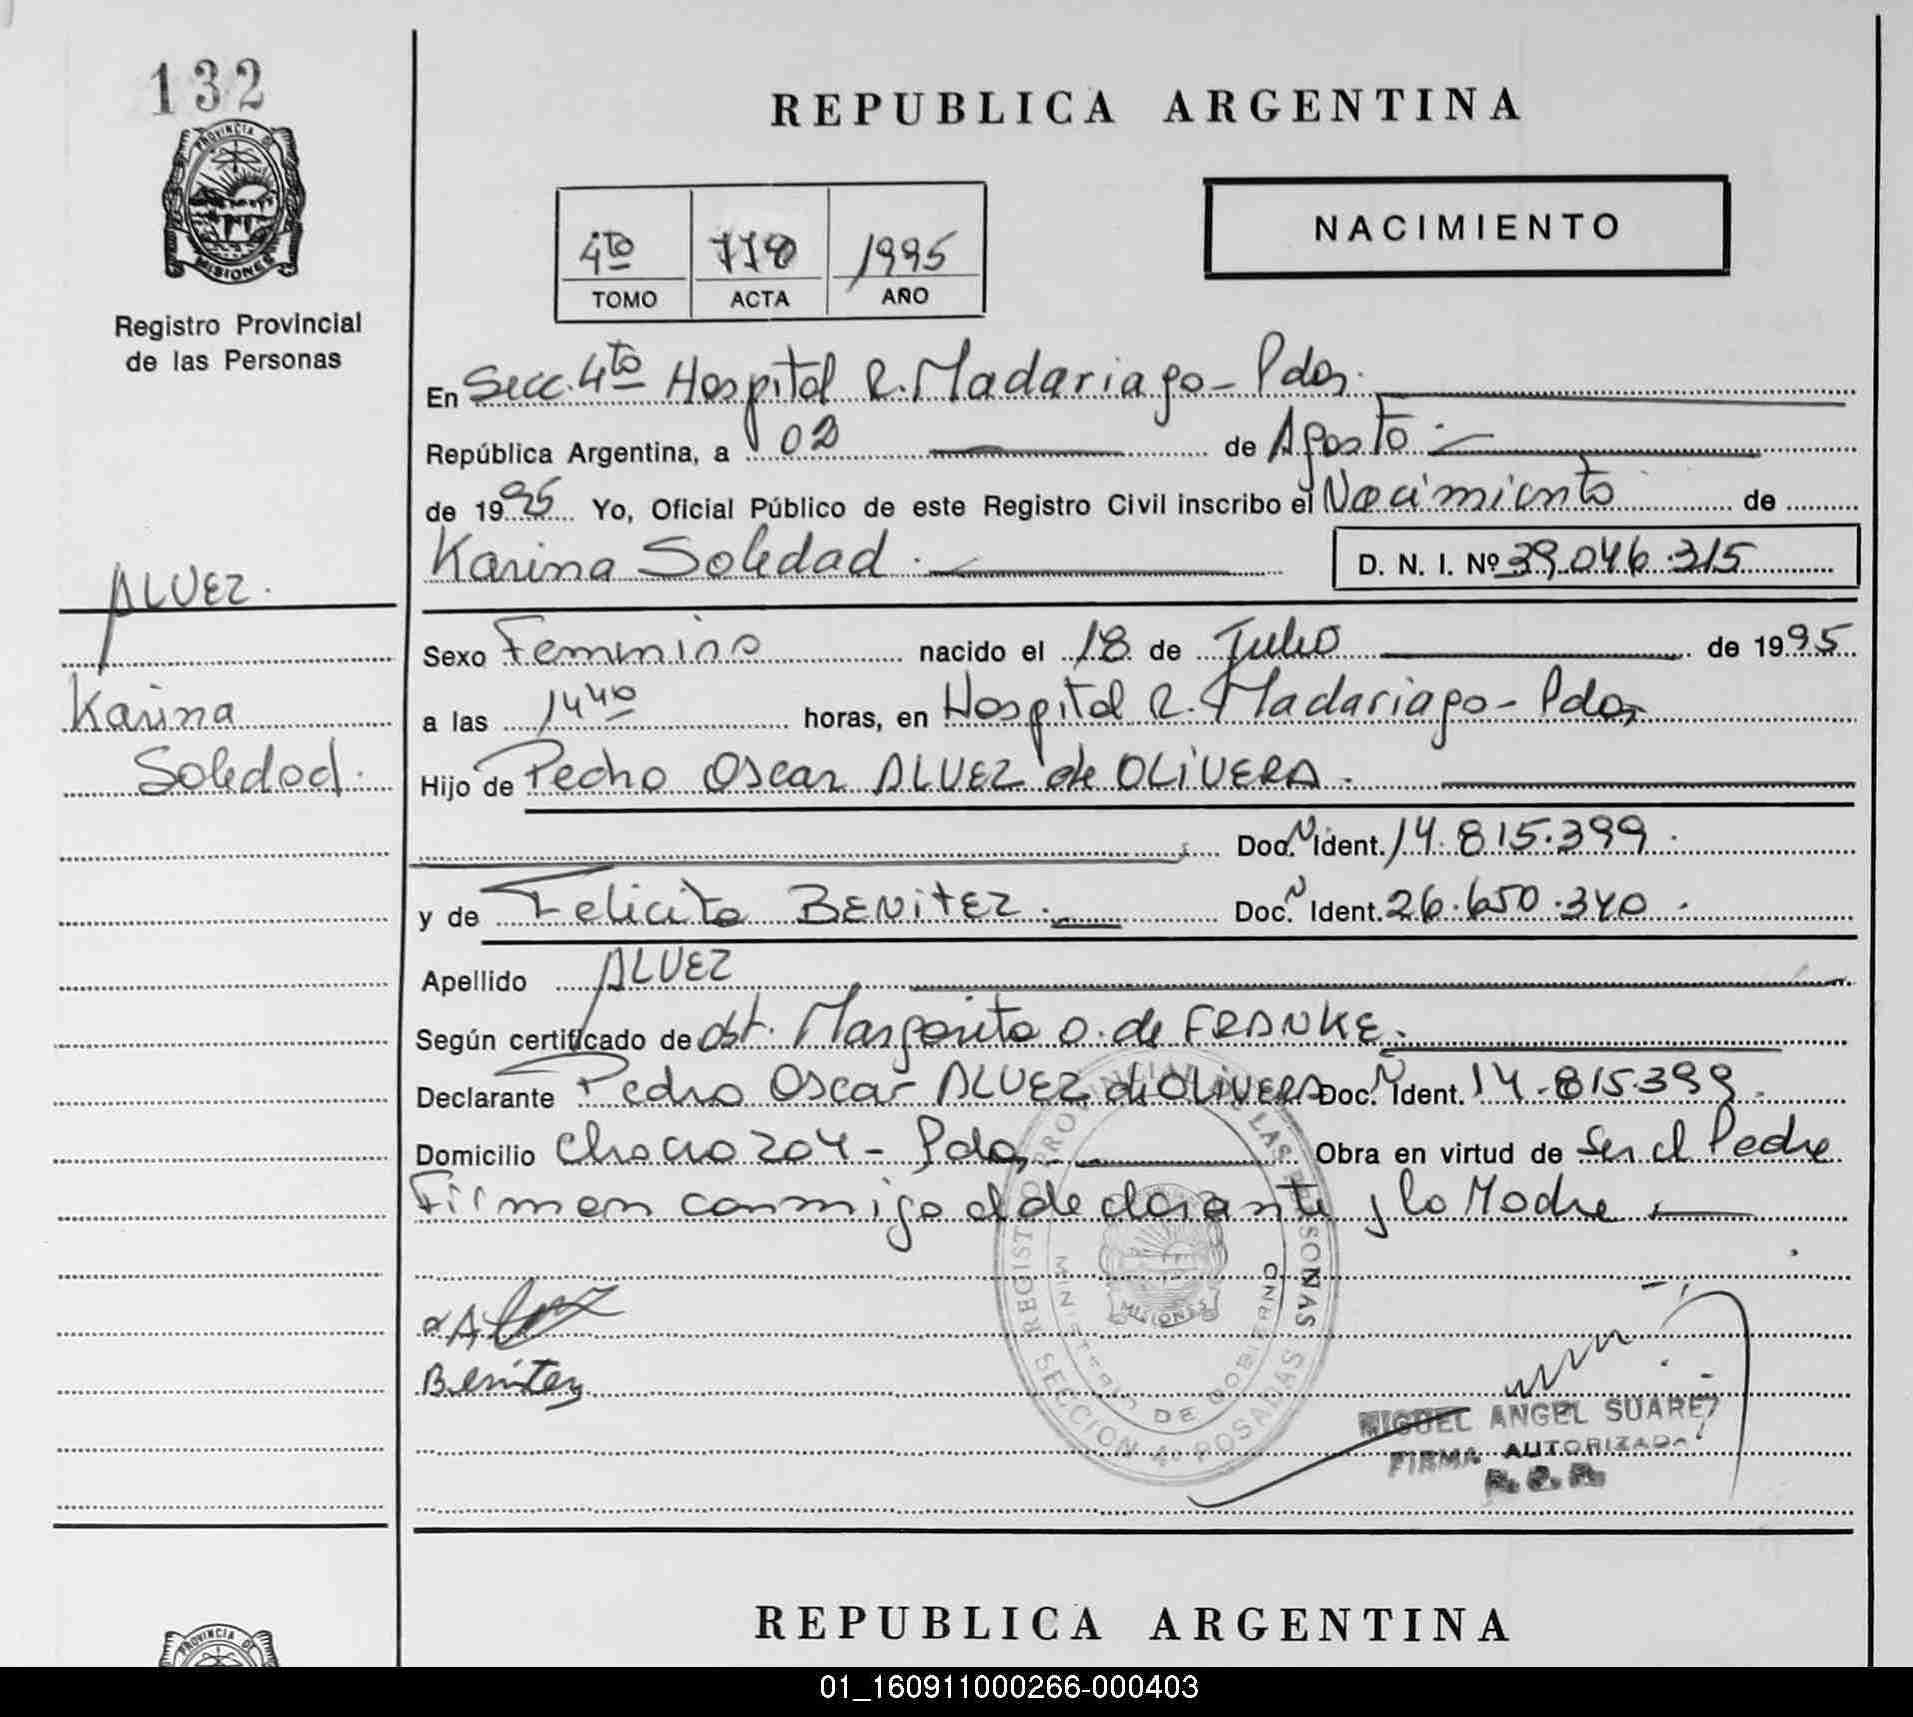 132
PROVINCIA DE
MISIONES
Registro Provincial
de las Personas
REPUBLICA ARGENTINA
NACIMIENTO
4to 778 1995
TOMO ACTA AÑO
En Secc. 4to Hospital R. Madariaga - Pdas.
República Argentina, a 02 de Agosto
de 1995 Yo, Oficial Público de este Registro Civil inscribo el Nacimiento de
Karina Soledad. D. N. I. Nº 39.046.315
ALVEZ.
Karina
Soledad.
Sexo Femenino nacido el 18 de Julio de 1995
a las 1440 horas, en Hospital R. Madariaga - Pdas,
Hijo de Pedro Oscar ALVEZ de OLIVERA.
Doc. N Ident. 14.815.399.
y de Felicita BENITEZ. Doc. N Ident. 26.650.340.
Apellido ALVEZ
Según certificado de Obst. Margarita O. de FRANKE.
Declarante Pedro Oscar ALVEZ de OLIVERA Doc. N Ident. 14.815.399.
Domicilio Chaco 204 - Pdas, Obra en virtud de Ser el Padre
Firman conmigo el declarante y la Madre
REGISTRO PROVINCIAL DE LAS PERSONAS
MINISTERIO DE GOBIERNO
MISIONES
SECCION 4º POSADAS
Benitez
MIGUEL ANGEL SUAREZ
FIRMA AUTORIZADA
R. P. P.
REPUBLICA ARGENTINA
PROVINCIA DE
01_160911000266-000403